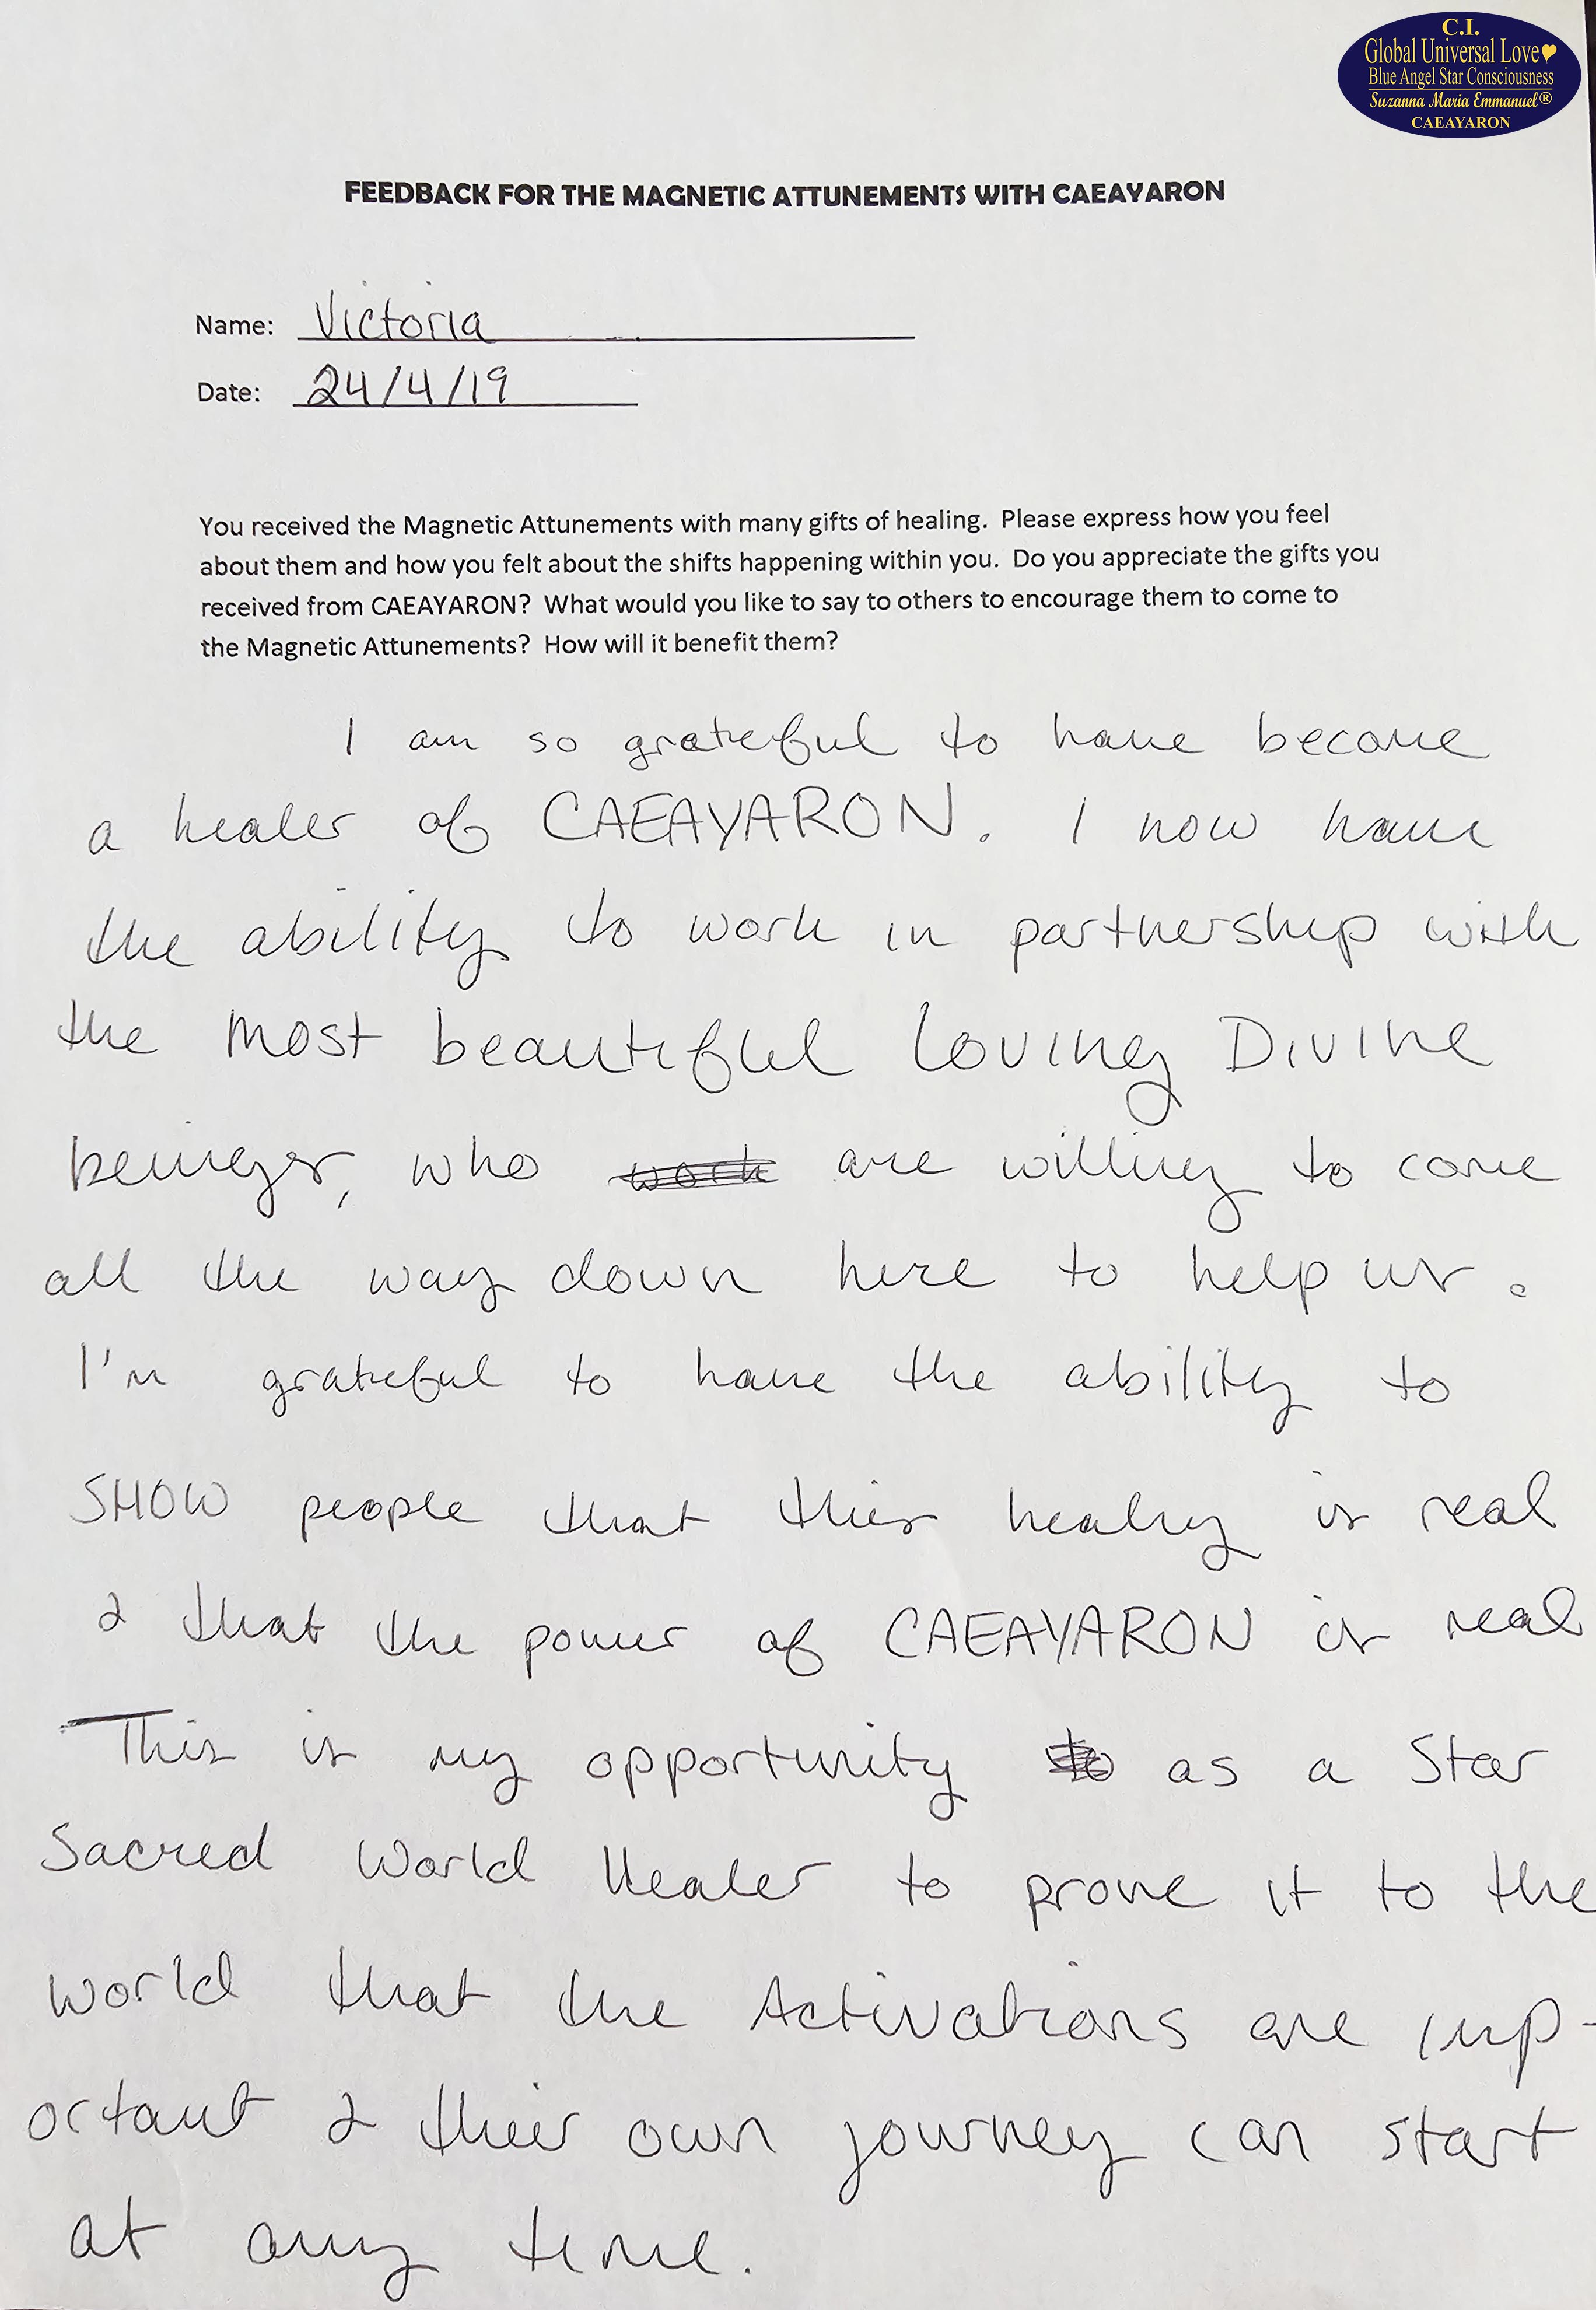 C.I.
Global Universal Love
Blue Angel Star Consciousness
Suzanna Maria Emmanuel®
CAEAYARON
FEEDBACK FOR THE MAGNETIC ATTUNEMENTS WITH CAEAYARON
Name: Victoria
Date: 24/4/19
You received the Magnetic Attunements with many gifts of healing. Please express how you feel
about them and how you felt about the shifts happening within you. Do you appreciate the gifts you
received from CAEAYARON? What would you like to say to others to encourage them to come to
the Magnetic Attunements? How will it benefit them?
I am so grateful to have become
a healer of CAEAYARON. I now have
the ability to work in partnership with
the most beautiful loving Divine
beings, who work are willing to come
all the way down here to help us.
I'm grateful to have the ability to
SHOW people that this healing is real
& that the power of CAEAYARON is real
This is my opportunity to as a Star
Sacred World Healer to prove it to the
world that the Activations are imp-
ortant & their own journey can start
at any time.